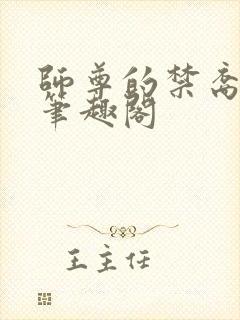 師尊的禁
筆趣閣
王主任